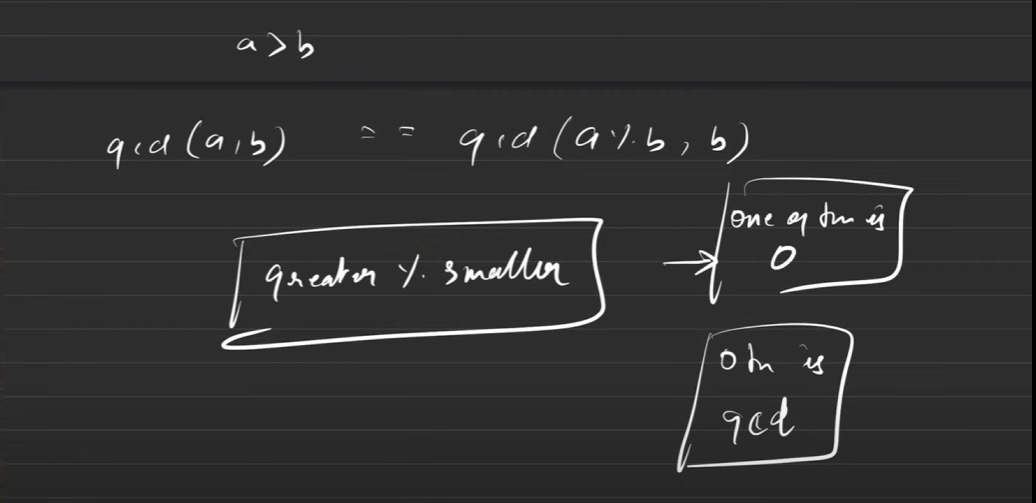 a > b
gcd (a, b) == gcd (a % b, b)
greater % smaller
one of tm is
0
otr is
gcd